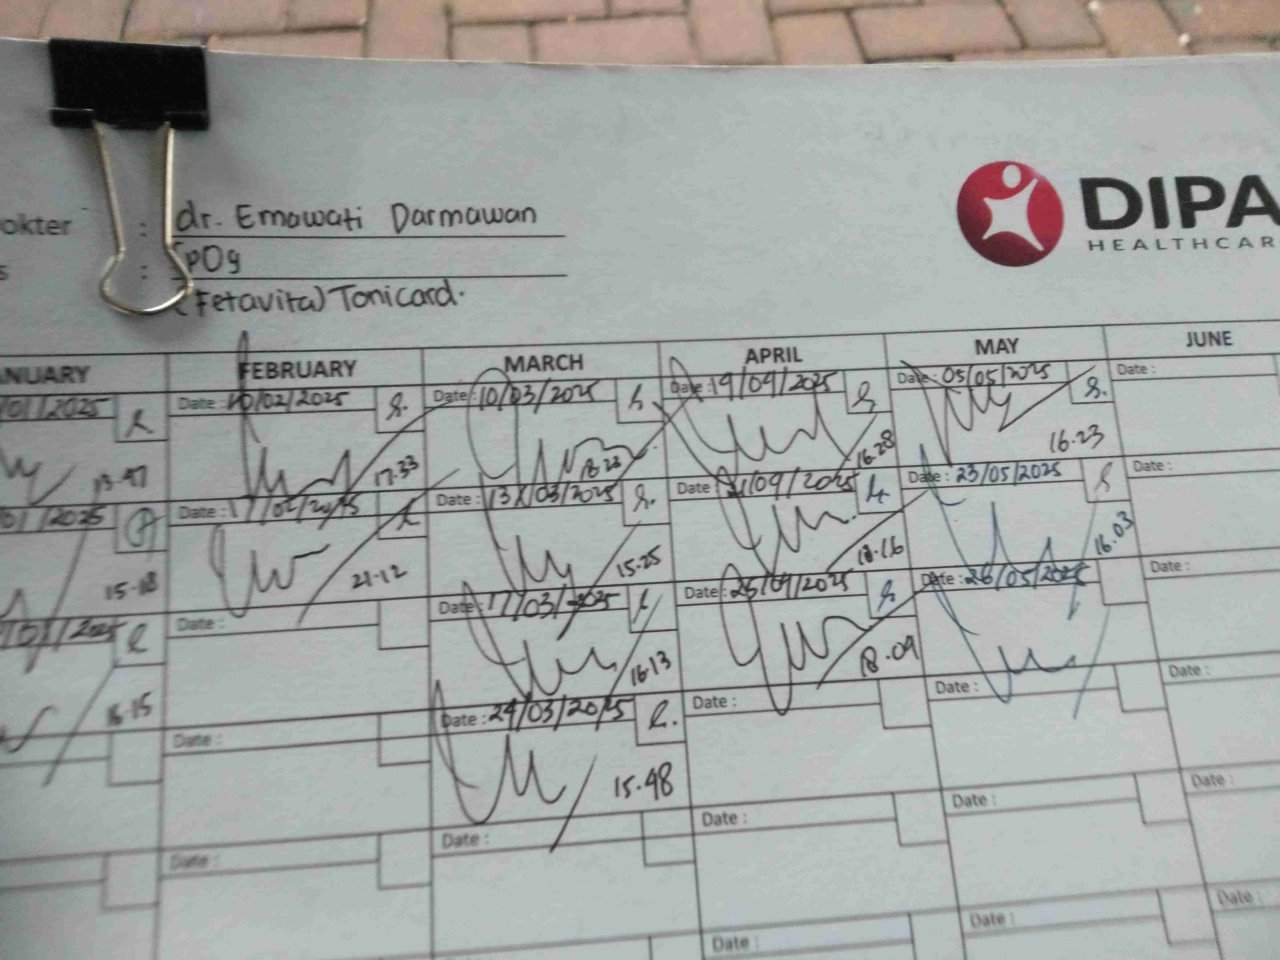 okter : dr. Ernawati Darmawan
s : SpOg
(Fetavita) Tonicard.
DIPA
HEALTHCAR
ANUARY FEBRUARY MARCH APRIL MAY JUNE
/01/2025 Date : 10/02/2025 Date : 10/03/2025 Date : 19/04/2025 Date : 05/05/2025 Date :
13.47 17.33 18.22 16.28 16.23
/2025 Date : 17/02/2025 Date : 13/03/2025 Date : 21/04/2025 Date : 23/05/2025 Date :
15.18 21.12 15.25 18.16 16.03
/2025 Date : Date : 17/03/2025 Date : 25/04/2025 Date : 26/05/2025 Date :
16.15 16.13 18.09
Date : Date : 24/03/2025 Date : Date : Date :
15.48
Date : Date : Date : Date : Date :
Date : Date : Date :